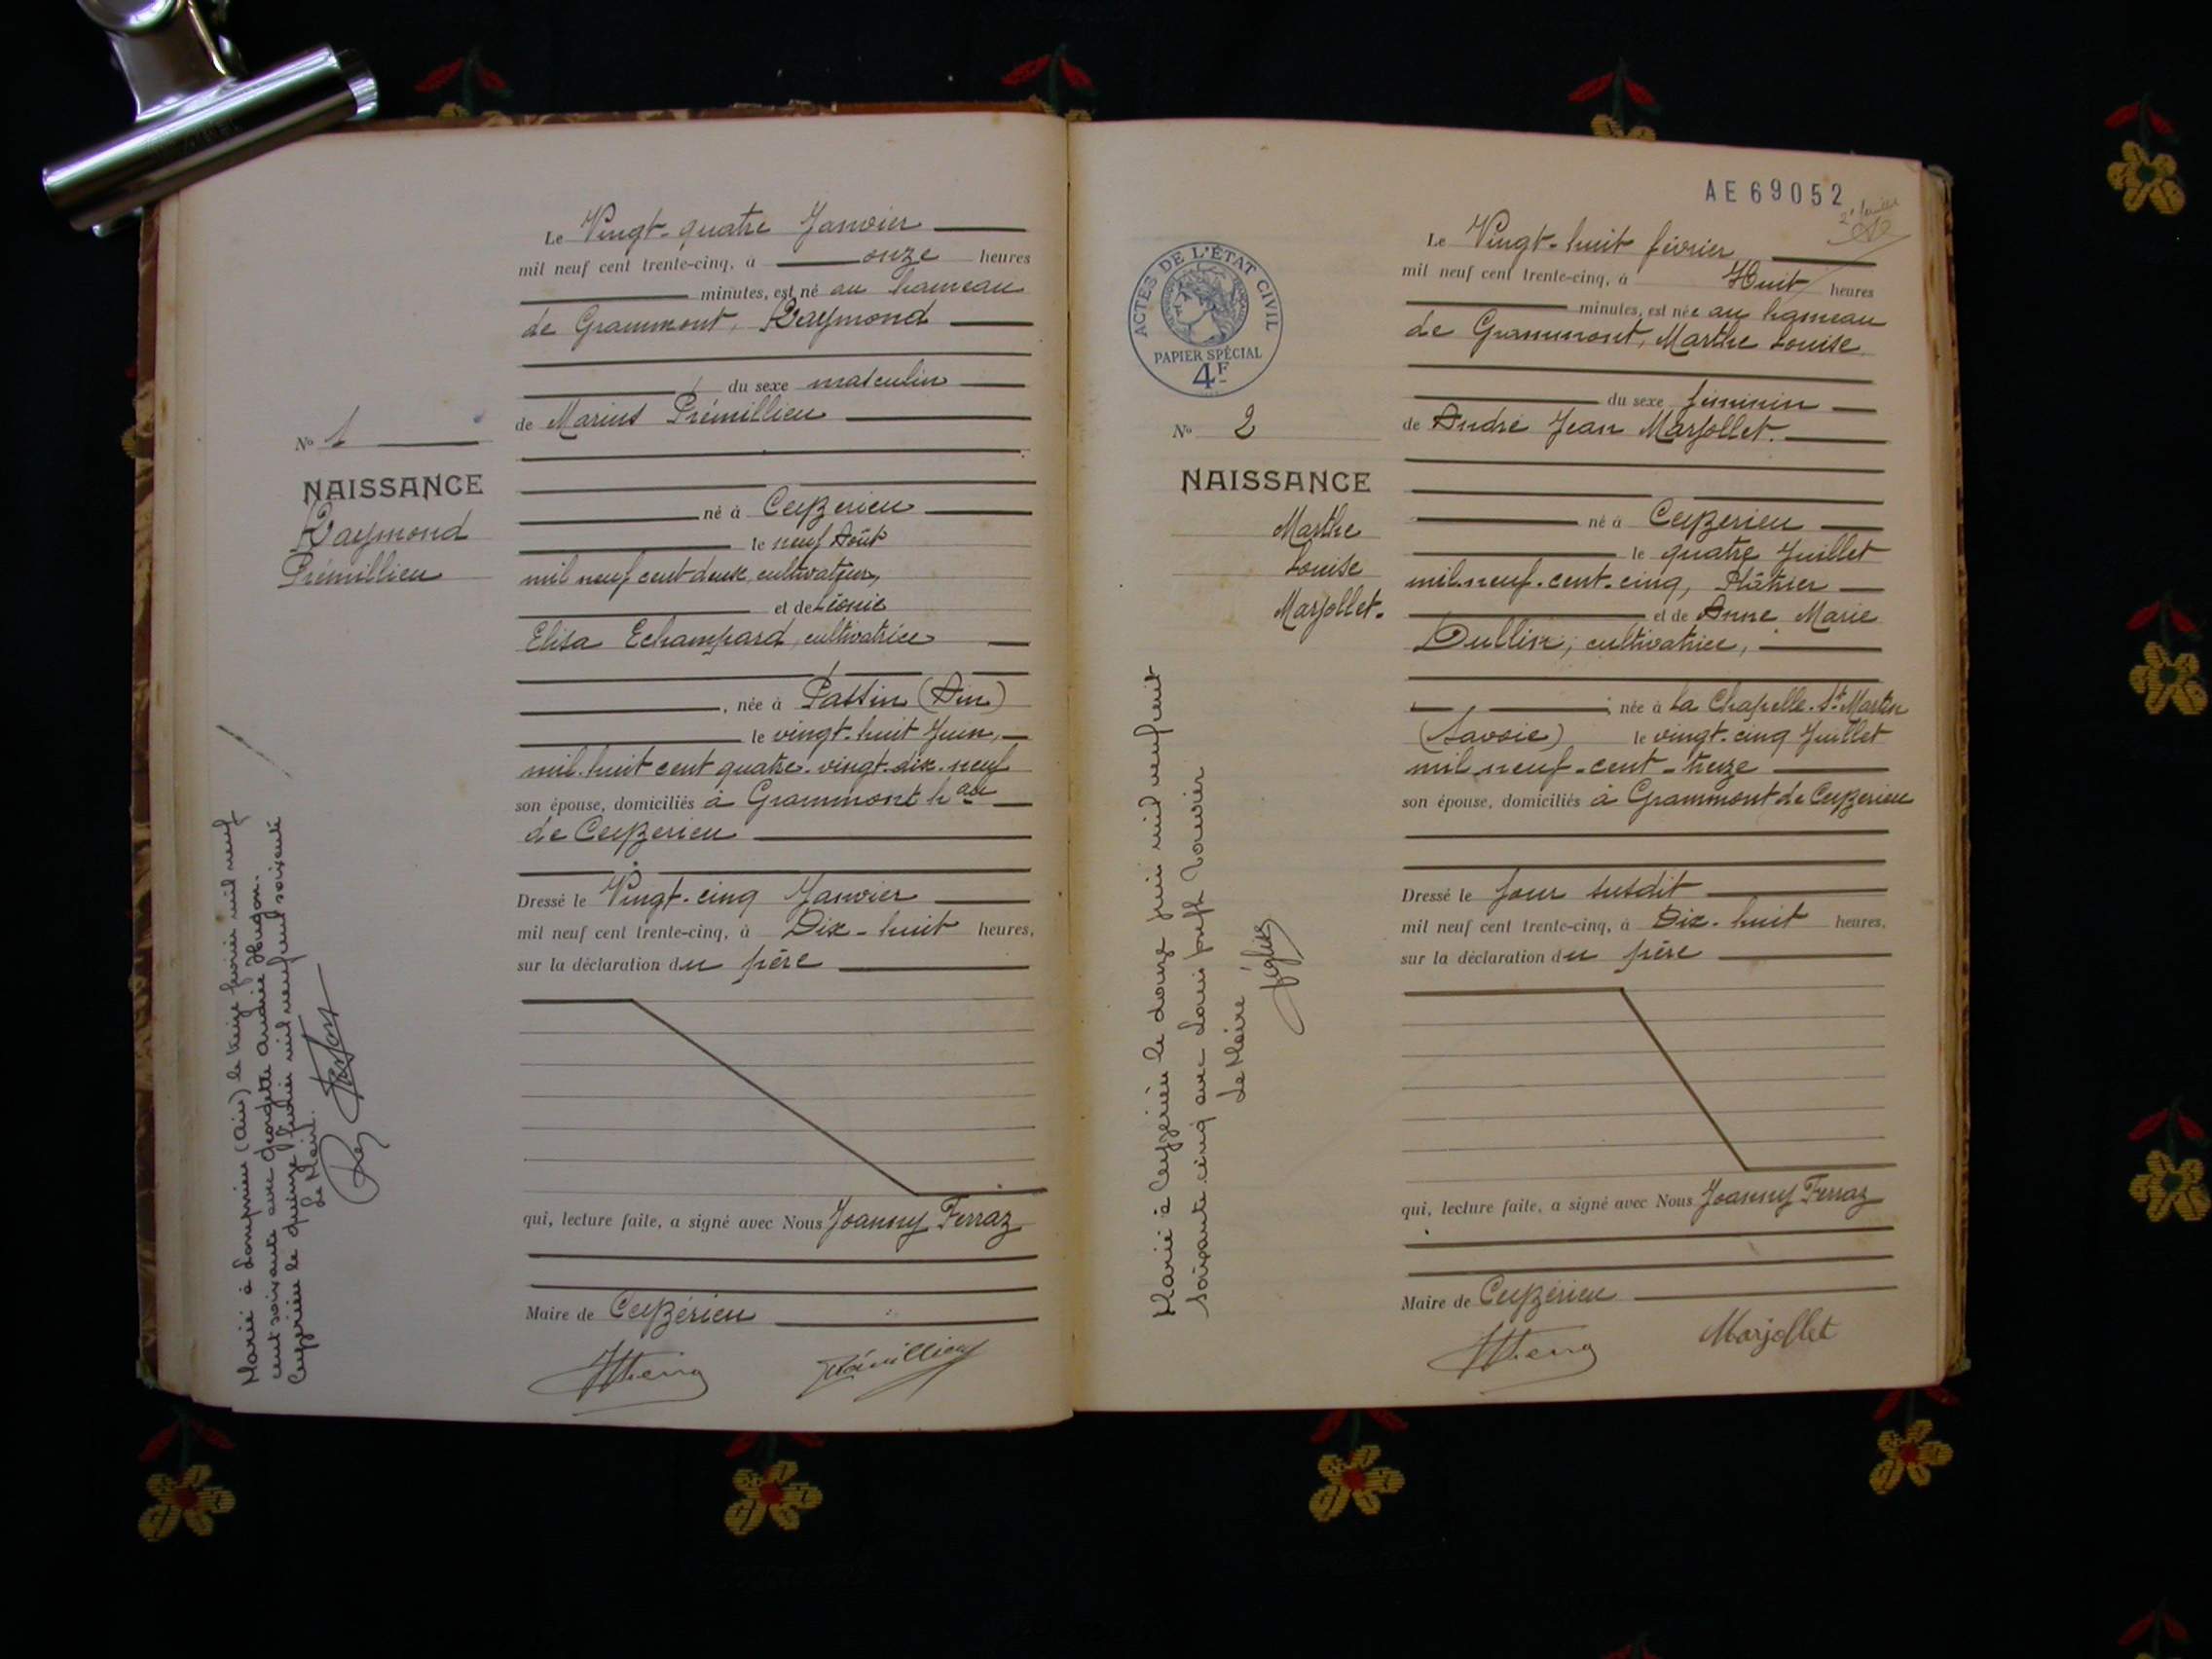 Le Vingt-quatre Janvier
mil neuf cent trente-cinq, à onze heures
minutes, est né au hameau
de Grammont, Raymond
du sexe masculin
de Marius Prémillieu
N° 1
NAISSANCE
Raymond
Prémillieu
né à Ceyzerieu
le neuf Août
mil neuf cent deux, cultivateur,
et de Léonie
Elisa Echampard, cultivatrice
, née à Passin (Ain)
le vingt-huit Juin,
mil huit cent quatre-vingt-dix-neuf
son épouse, domiciliés à Grammont hau
de Ceyzerieu
Dressé le Vingt-cinq Janvier
mil neuf cent trente-cinq, à Dix-huit heures,
sur la déclaration du père
qui, lecture faite, a signé avec Nous Joanny Ferraz
Maire de Ceyzérieu
Prémillieu
Marié à Lompnieu (Ain) le treize février mil neuf
cent soixante avec Georgette Andrée Hugon.
Ceyzérieu le quinze février mil neuf cent soixante
Le Maire.
AE 69052
ACTES DE L'ÉTAT CIVIL
PAPIER SPÉCIAL
4F
Le Vingt-huit février
mil neuf cent trente-cinq, à Huit heures
minutes, est née au hameau
de Grammont, Marthe Louise
du sexe féminin
de André Jean Marjollet.
N° 2
NAISSANCE
Marthe
Louise
Marjollet.
né à Ceyzerieu
le quatre Juillet
mil neuf-cent-cinq, Plâtrier
et de Anne Marie
Dullin, cultivatrice,
, née à La Chapelle-St-Martin
(Savoie) le vingt-cinq Juillet
mil neuf-cent-treize
son épouse, domiciliés à Grammont de Ceyzerieu
Dressé le Jour susdit
mil neuf cent trente-cinq, à Dix-huit heures,
sur la déclaration du père
qui, lecture faite, a signé avec Nous Joanny Ferraz
Maire de Ceyzérieu
Marjollet
Marié à Ceyzérieu le douze juin mil neuf cent
soixante cinq avec Louis Joseph
Le Maire